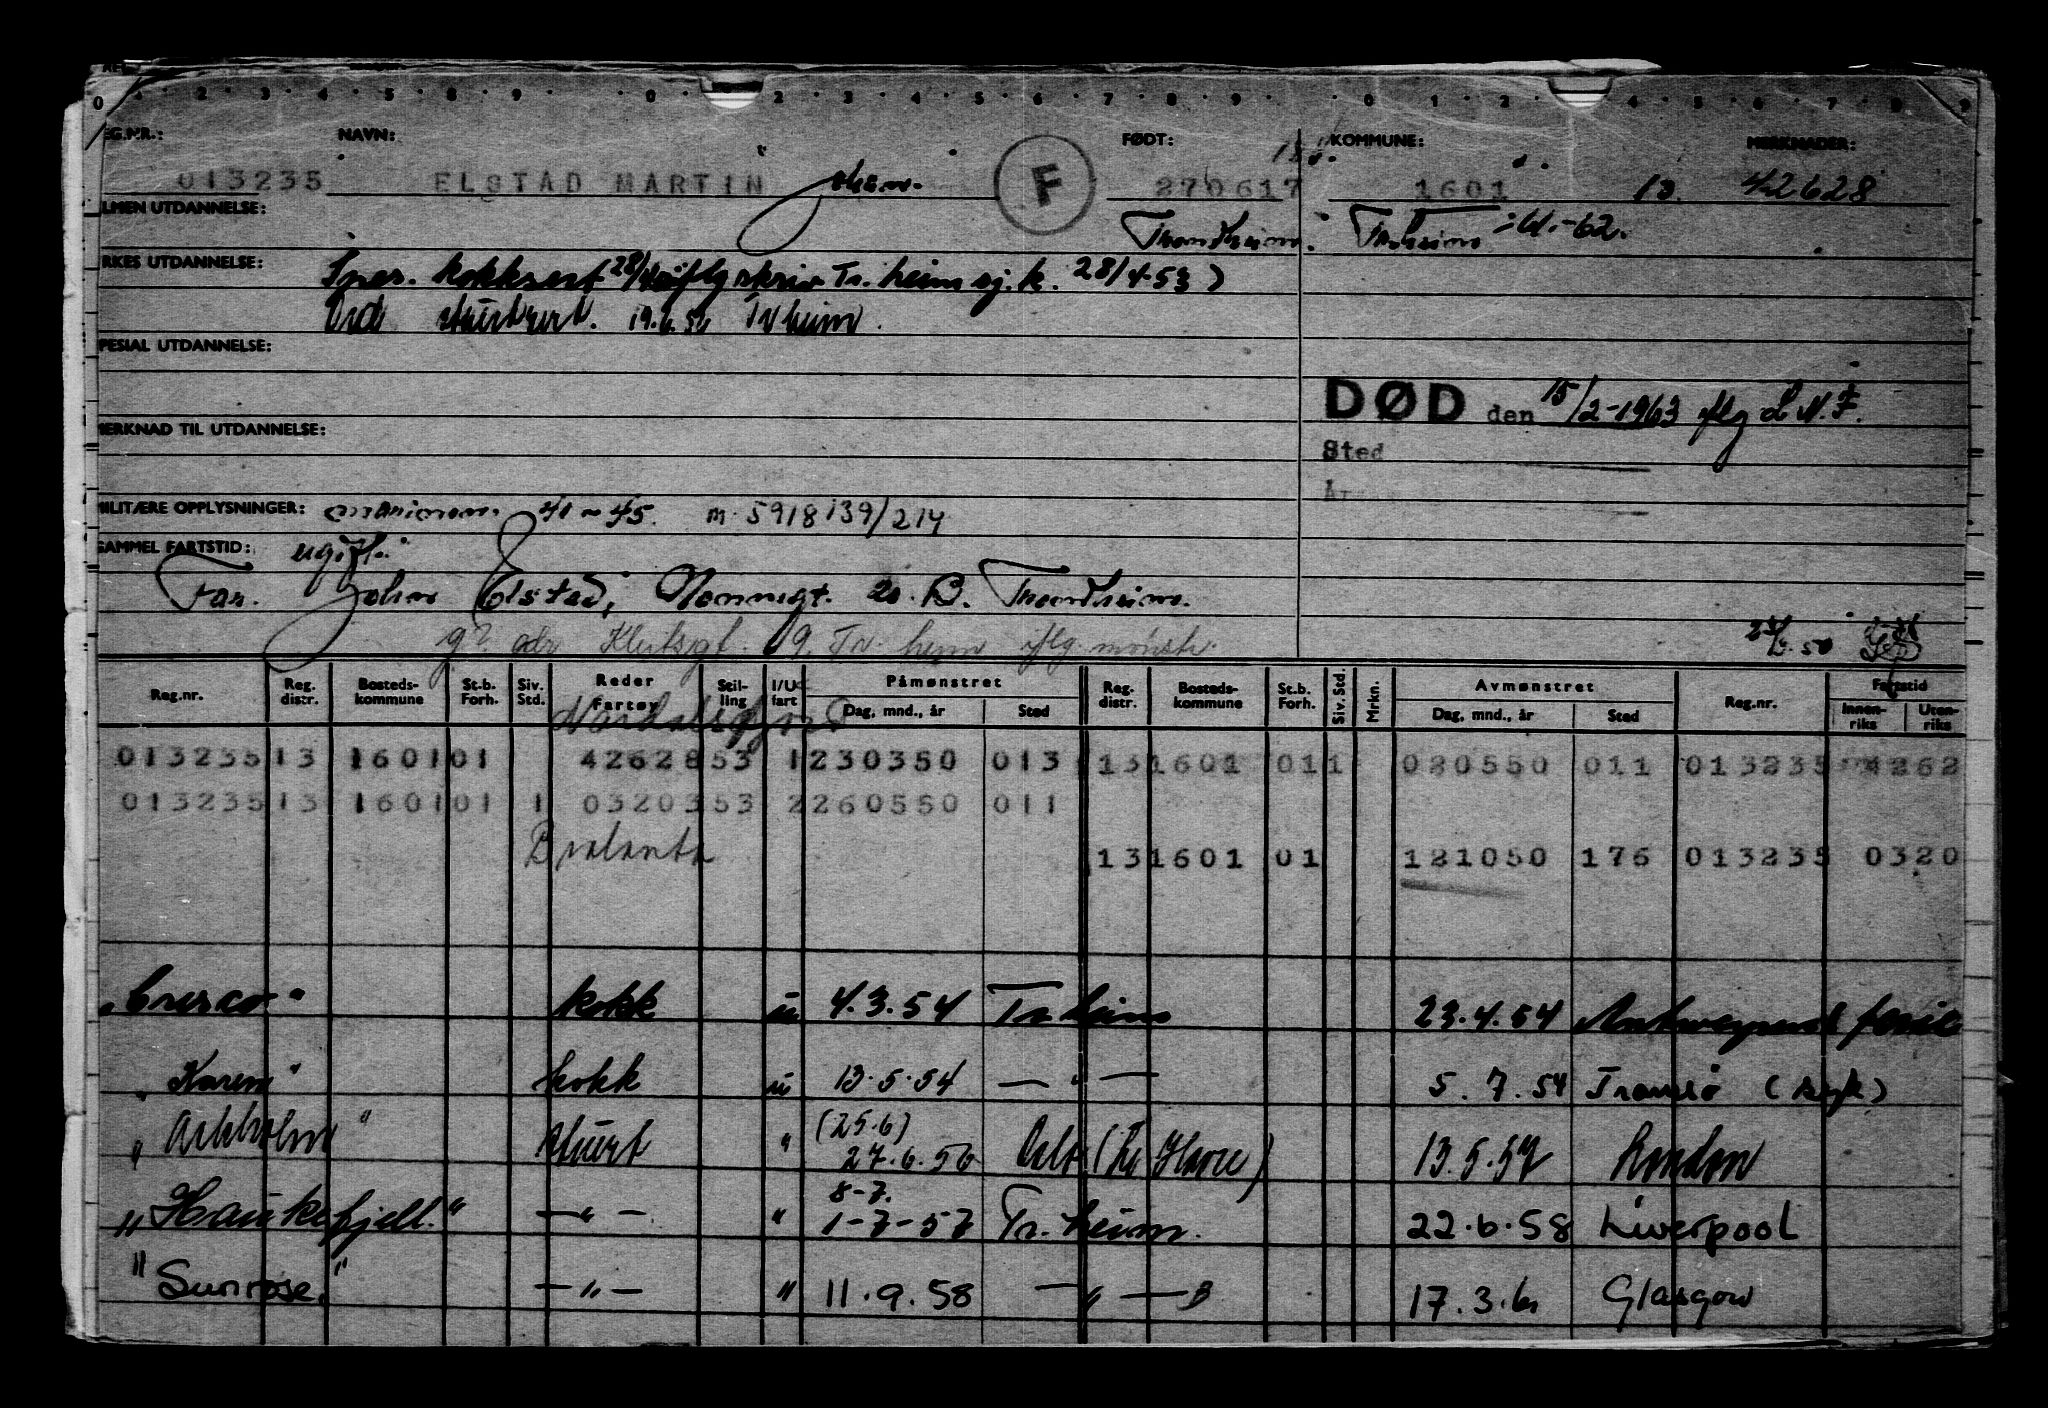 0 2 3 4 5 8 9 0 2 3 4 5 6 7 8 9 0 1 2 4 5 6 7 8 9
EG.NR.: NAVN: FØDT: KOMMUNE: MERKNADER:
013235 ELSTAD MARTIN Johan. F 270617 1601 10. 42628
LMEN UTDANNELSE: Trondheim. Trheim -61.-62.
RKES UTDANNELSE: Spes. kokksert 28/4 iflg skriv Tr.heim sj.k. 28/4-53)
Ord stuertsert. 19.6.56 Trheim.
PESIAL UTDANNELSE:
DØD den 15/2-1963 iflg L.N.F.
MERKNAD TIL UTDANNELSE:
Sted
MILITÆRE OPPLYSNINGER: marinen. 41-45. m. 5918139/214
SAMMEL FARTSTID: ugift.
Far. Johan Elstad, Nonnegt. 20. B. Trondheim.
g? adr Klostergt. 19. Tr.heim iflg. mønstr.
Reg.nr. Reg. distr. Bosteds-kommune St.b. Forh. Siv. Std. Reder Fartøy Stilling I/U fart Påmønstret Dag, mnd., år Sted Reg. distr. Bosteds-kommune St.b. Forh. Siv. Std. Mrkn. Avmønstret Dag, mnd., år Sted Reg.nr. Fartstid Innenriks Utenriks
013235 13 1601 01 42628 53 1 230350 013 13 1601 01 1 020550 011 013235 4262
013235 13 1601 01 1 03203 53 2 260550 011
Bralanta 13 1601 01 121050 176 013235 0320
„Cresco" kokk u 4.3.54 Tr.heim 23.4.54 Antwerpen ferie
„Karen" kokk u 13.5.54 — " — 5.7.54 Tromsø (syk)
(25.6)
„Arkholm" stuert " 27.6.56 Oslo (Le Havre) 13.5.57 London
8-7.
„Haukefjell." — " — " 1-7-57 Tr.heim. 22.6.58 Liverpool
"Sunrose." — " — " 11.9.58 — " — 17.3.61 Glasgow